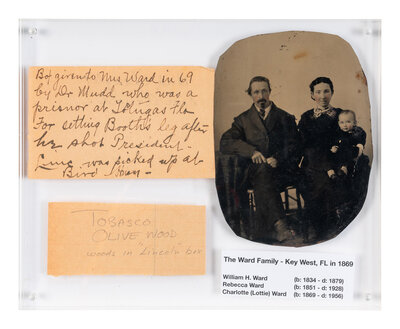 Box given to Mrs Ward in 69
by Dr Mudd who was a
presnor at Totugas Fla
For setting Booth's leg after
he shot President.
was picked up at
Bird
TOBASCO
OLIVE WOOD
woods in "Lincoln" box
The Ward Family - Key West, FL in 1869
William H. Ward (b: 1834 - d: 1879)
Rebecca Ward (b: 1851 - d: 1928)
Charlotte (Lottie) Ward (b: 1869 - d: 1956)